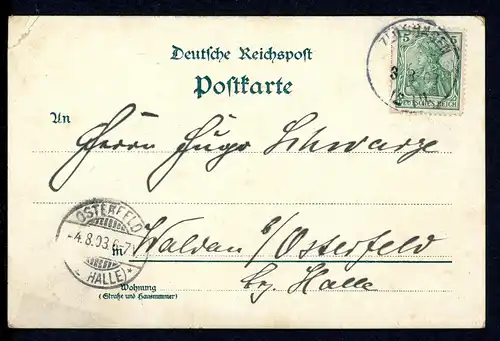 Deutsche Reichspost
Postkarte
5 5
DEUTSCHES REICH
An
Herrn Hugo Schwarze
OSTERFELD
-4.8.03.6-7V
* (HALLE) *
in Waldau b/Osterfeld
bz. Halle
Wohnung
(Straße und Hausnummer)